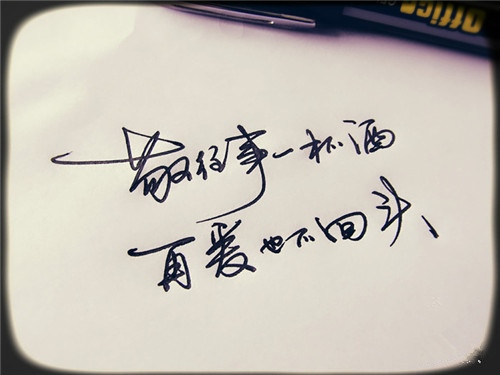 Office
敬往事一杯酒
再爱也不回头、